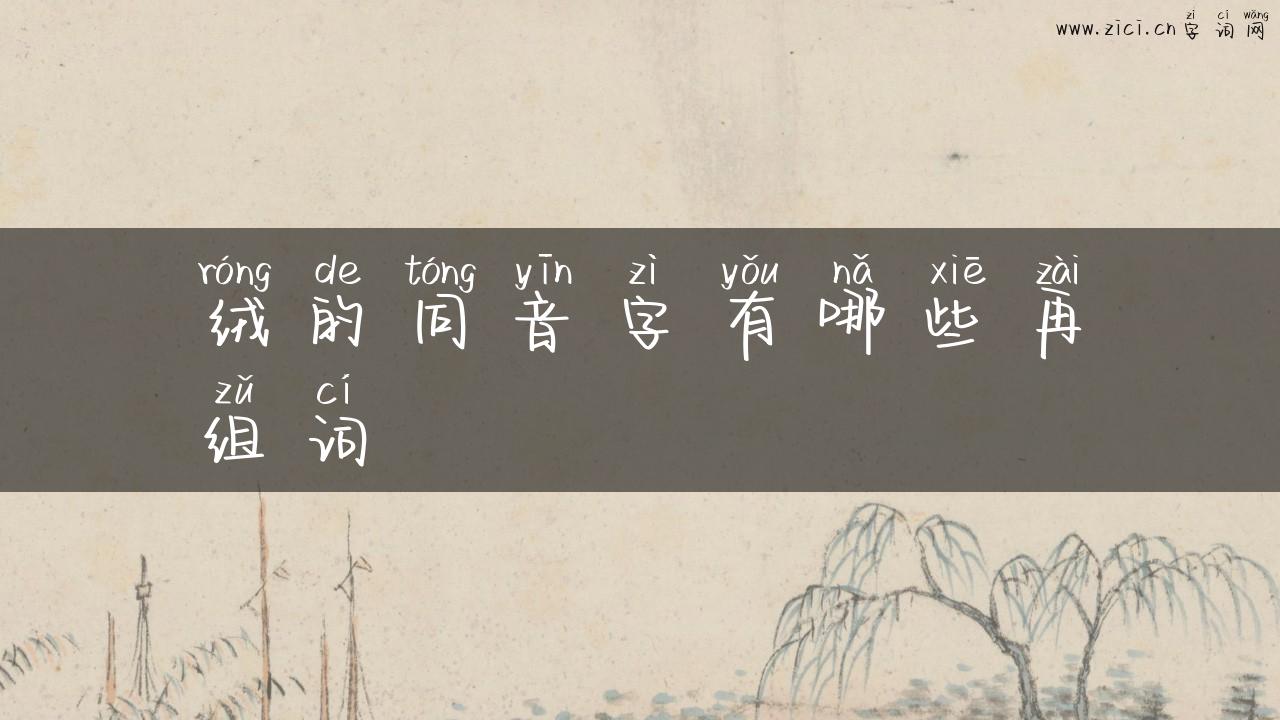 zì cí wǎng
www.zici.cn 字词网
róng de tóng yīn zì yǒu nǎ xiē zài
绒的同音字有哪些再
zǔ cí
组词